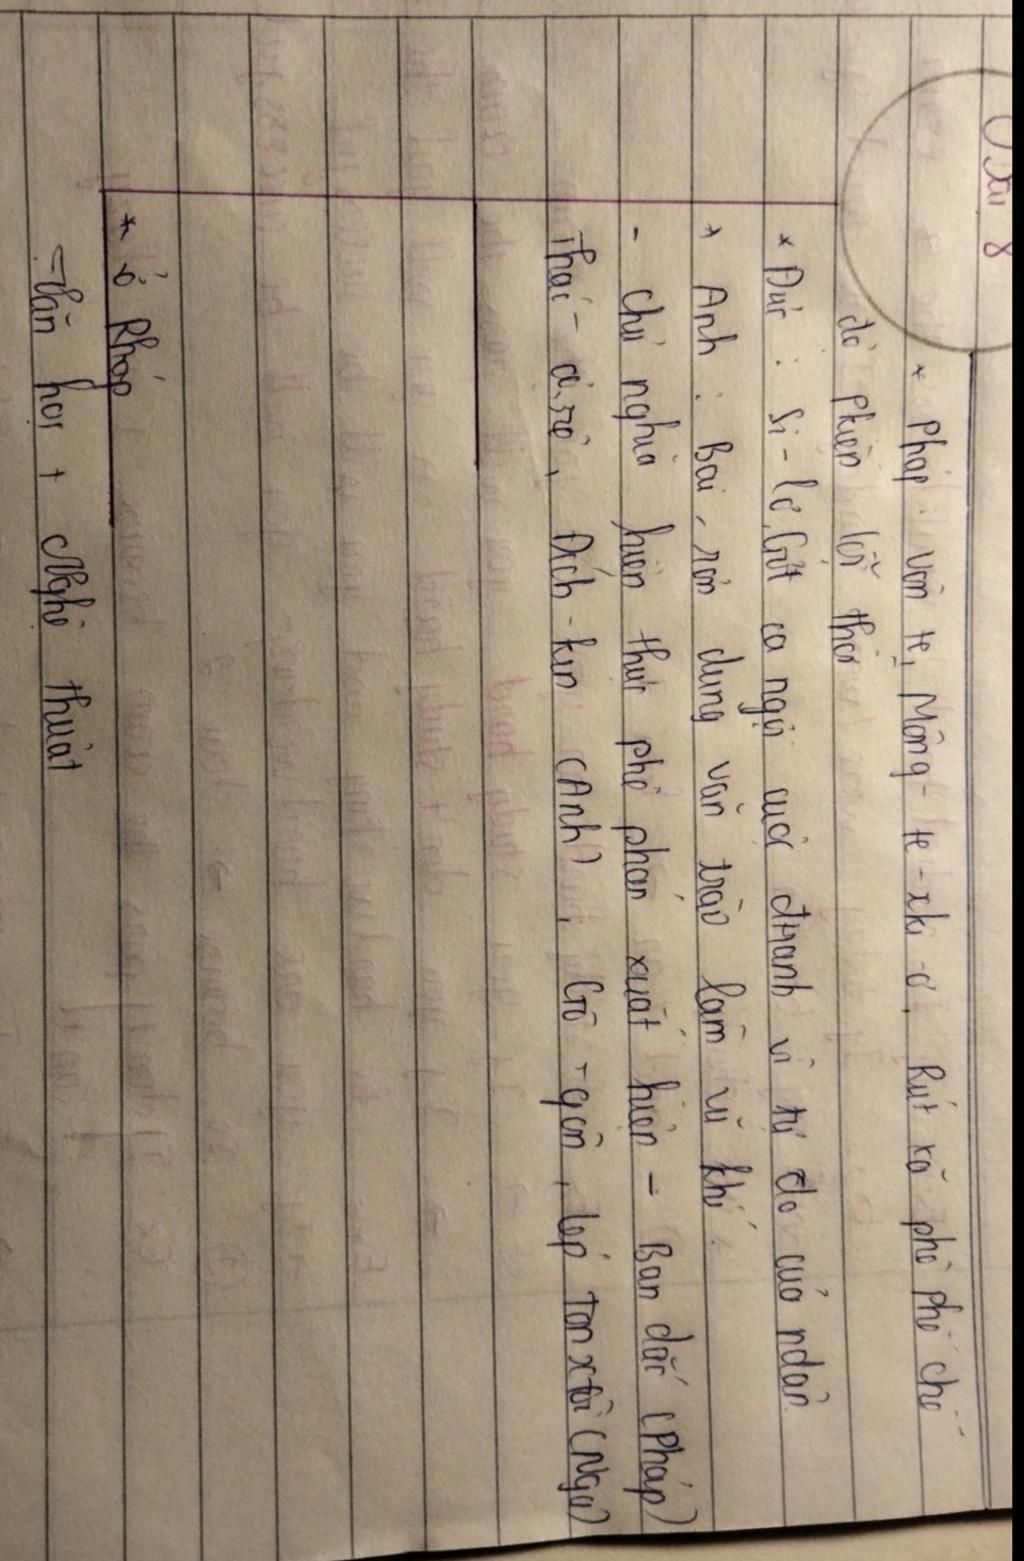 Bài 8
* Pháp : Vôn te, Mông-te-xki-ơ, Rút xô phê phá chế
độ phiện lỗi thời
* Đức : Si-lơ, Gớt ca ngợi cuộc đtranh vì tự do của ndân
* Anh : Bai-rơn dung văn trào lam vũ khí.
- chủ nghĩa hiện thực phê phán xuất hiện - Ban dắc (Pháp)
Thác-cơ.rê, Đích-ken (Anh), Gô-gôn, lép Tonxtôi (Nga)
* ở Pháp
- Văn học + Nghệ thuật